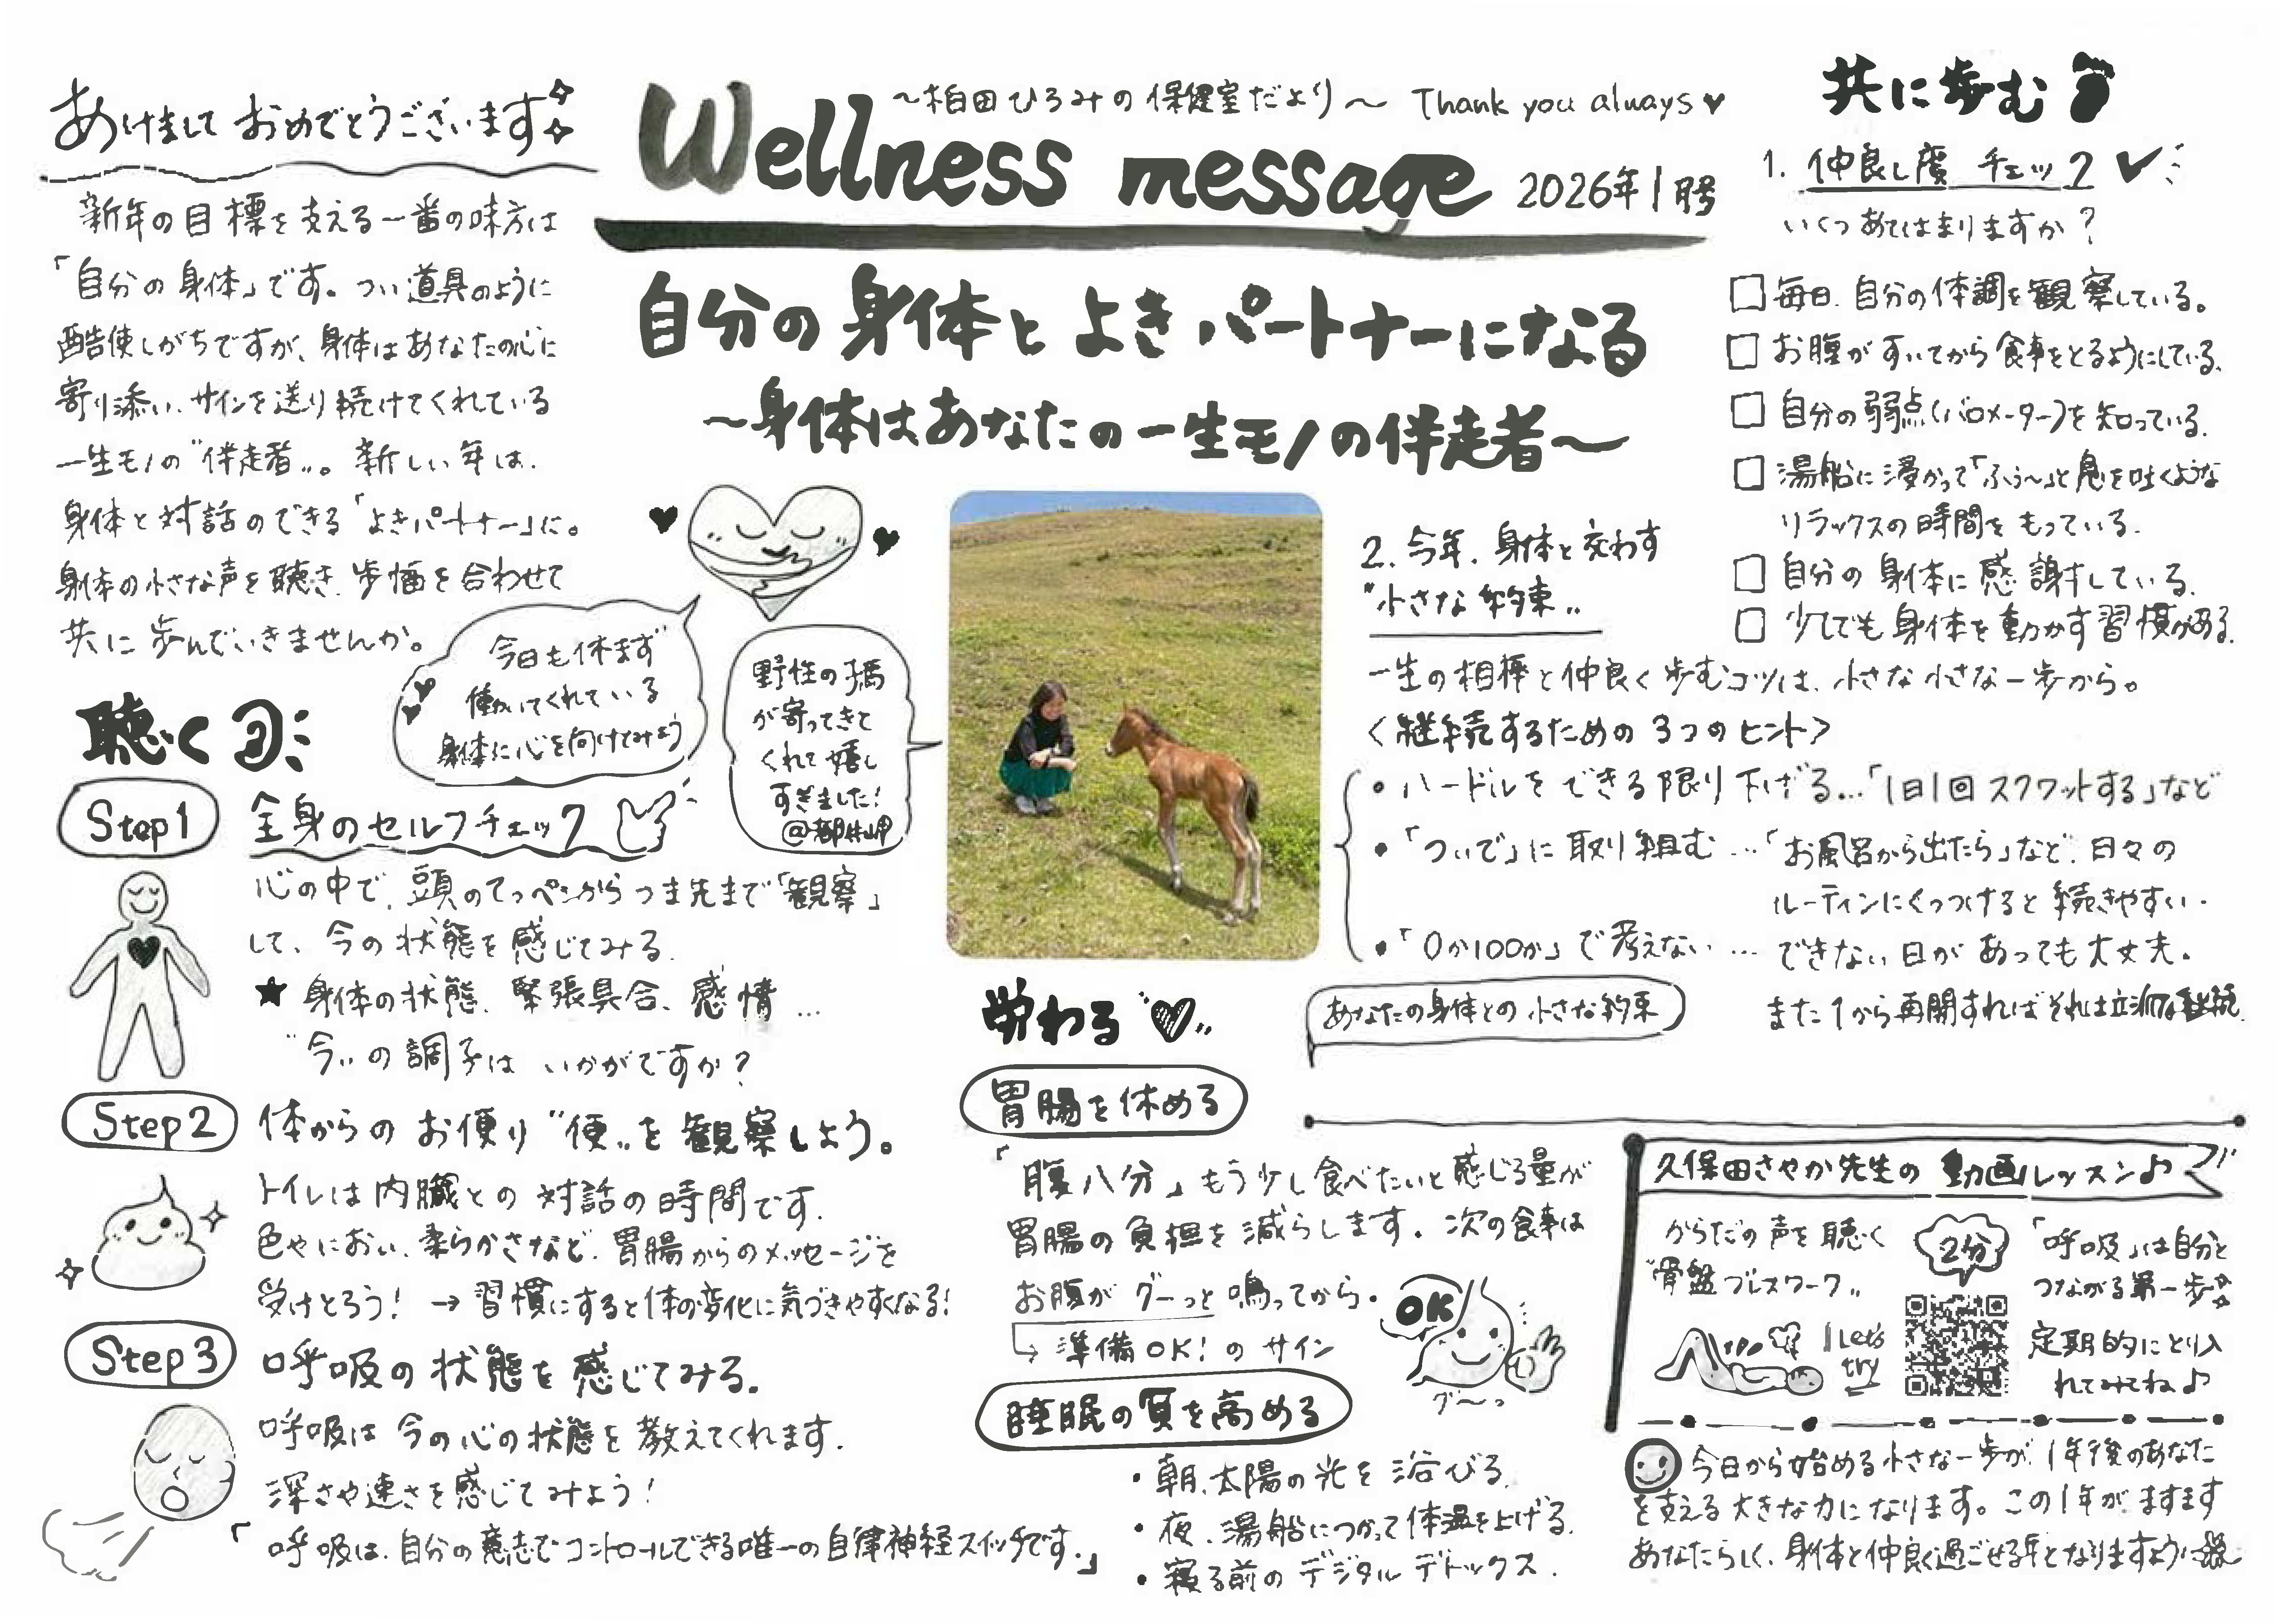 あけましておめでとうございます
新年の目標を支える一番の味方は
「自分の身体」です。つい道具のように
酷使しがちですが、身体はあなたの心に
寄り添い、サインを送り続けてくれている
一生モノの"伴走者"。新しい年は、
身体と対話のできる「よきパートナー」に。
身体の小さな声を聴き、歩幅を合わせて
共に歩んでいきませんか。
〜柏田ひろみの保健室だより〜 Thank you always
Wellness message 2026年1月号
自分の身体とよきパートナーになる
〜身体はあなたの一生モノの伴走者〜
今日も休まず
働いてくれている
身体に心を向けてみよう
野性の子馬
が寄ってきて
くれて嬉し
すぎました!
@都井岬
聴く
Step1 全身のセルフチェック
心の中で、頭のてっぺんからつま先まで「観察」
して、今の状態を感じてみる。
★身体の状態、緊張具合、感情…
"今"の調子はいかがですか?
Step2 体からのお便り"便"を観察しよう。
トイレは内臓との対話の時間です。
色やにおい、柔らかさなど、胃腸からのメッセージを
受けとろう! → 習慣にすると体の変化に気づきやすくなる!
Step3 呼吸の状態を感じてみる。
呼吸は今の心の状態を教えてくれます。
深さや速さを感じてみよう!
「呼吸は、自分の意志でコントロールできる唯一の自律神経スイッチです。」
労わる
胃腸を休める
「腹八分」もう少し食べたいと感じる量が
胃腸の負担を減らします。次の食事は
お腹がグーっと鳴ってから。
→ 準備OK!のサイン
OK
グ〜っ
睡眠の質を高める
・朝、太陽の光を浴びる。
・夜、湯船につかって体温を上げる。
・寝る前のデジタルデトックス。
共に歩む
1. 仲良し度チェック✓
いくつあてはまりますか?
□毎日、自分の体調を観察している。
□お腹がすいてから食事をとるようにしている。
□自分の弱点(バロメーター)を知っている。
□湯船に浸かって「ふぅ〜」と息を吐くような
リラックスの時間をもっている。
□自分の身体に感謝している。
□少しでも身体を動かす習慣がある。
2. 今年、身体と交わす
"小さな約束"
一生の相棒と仲良く歩むコツは、小さな小さな一歩から。
<継続するための3つのヒント>
・ハードルをできる限り下げる…「1日1回スクワットする」など
・「ついで」に取り組む…「お風呂から出たら」など、日々の
ルーティンにくっつけると続きやすい。
・「0か100か」で考えない…できない日があっても大丈夫。
また1から再開すればそれは立派な継続。
あなたの身体との小さな約束
久保田さやか先生の動画レッスン♪
からだの声を聴く
"骨盤ブレスワーク"
2分
Let's
try
「呼吸」は自分と
つながる第一歩
定期的にとり入
れてみてね♪
今日から始める小さな一歩が、1年後のあなた
を支える大きな力になります。この1年がますます
あなたらしく、身体と仲良く過ごせる年となりますように